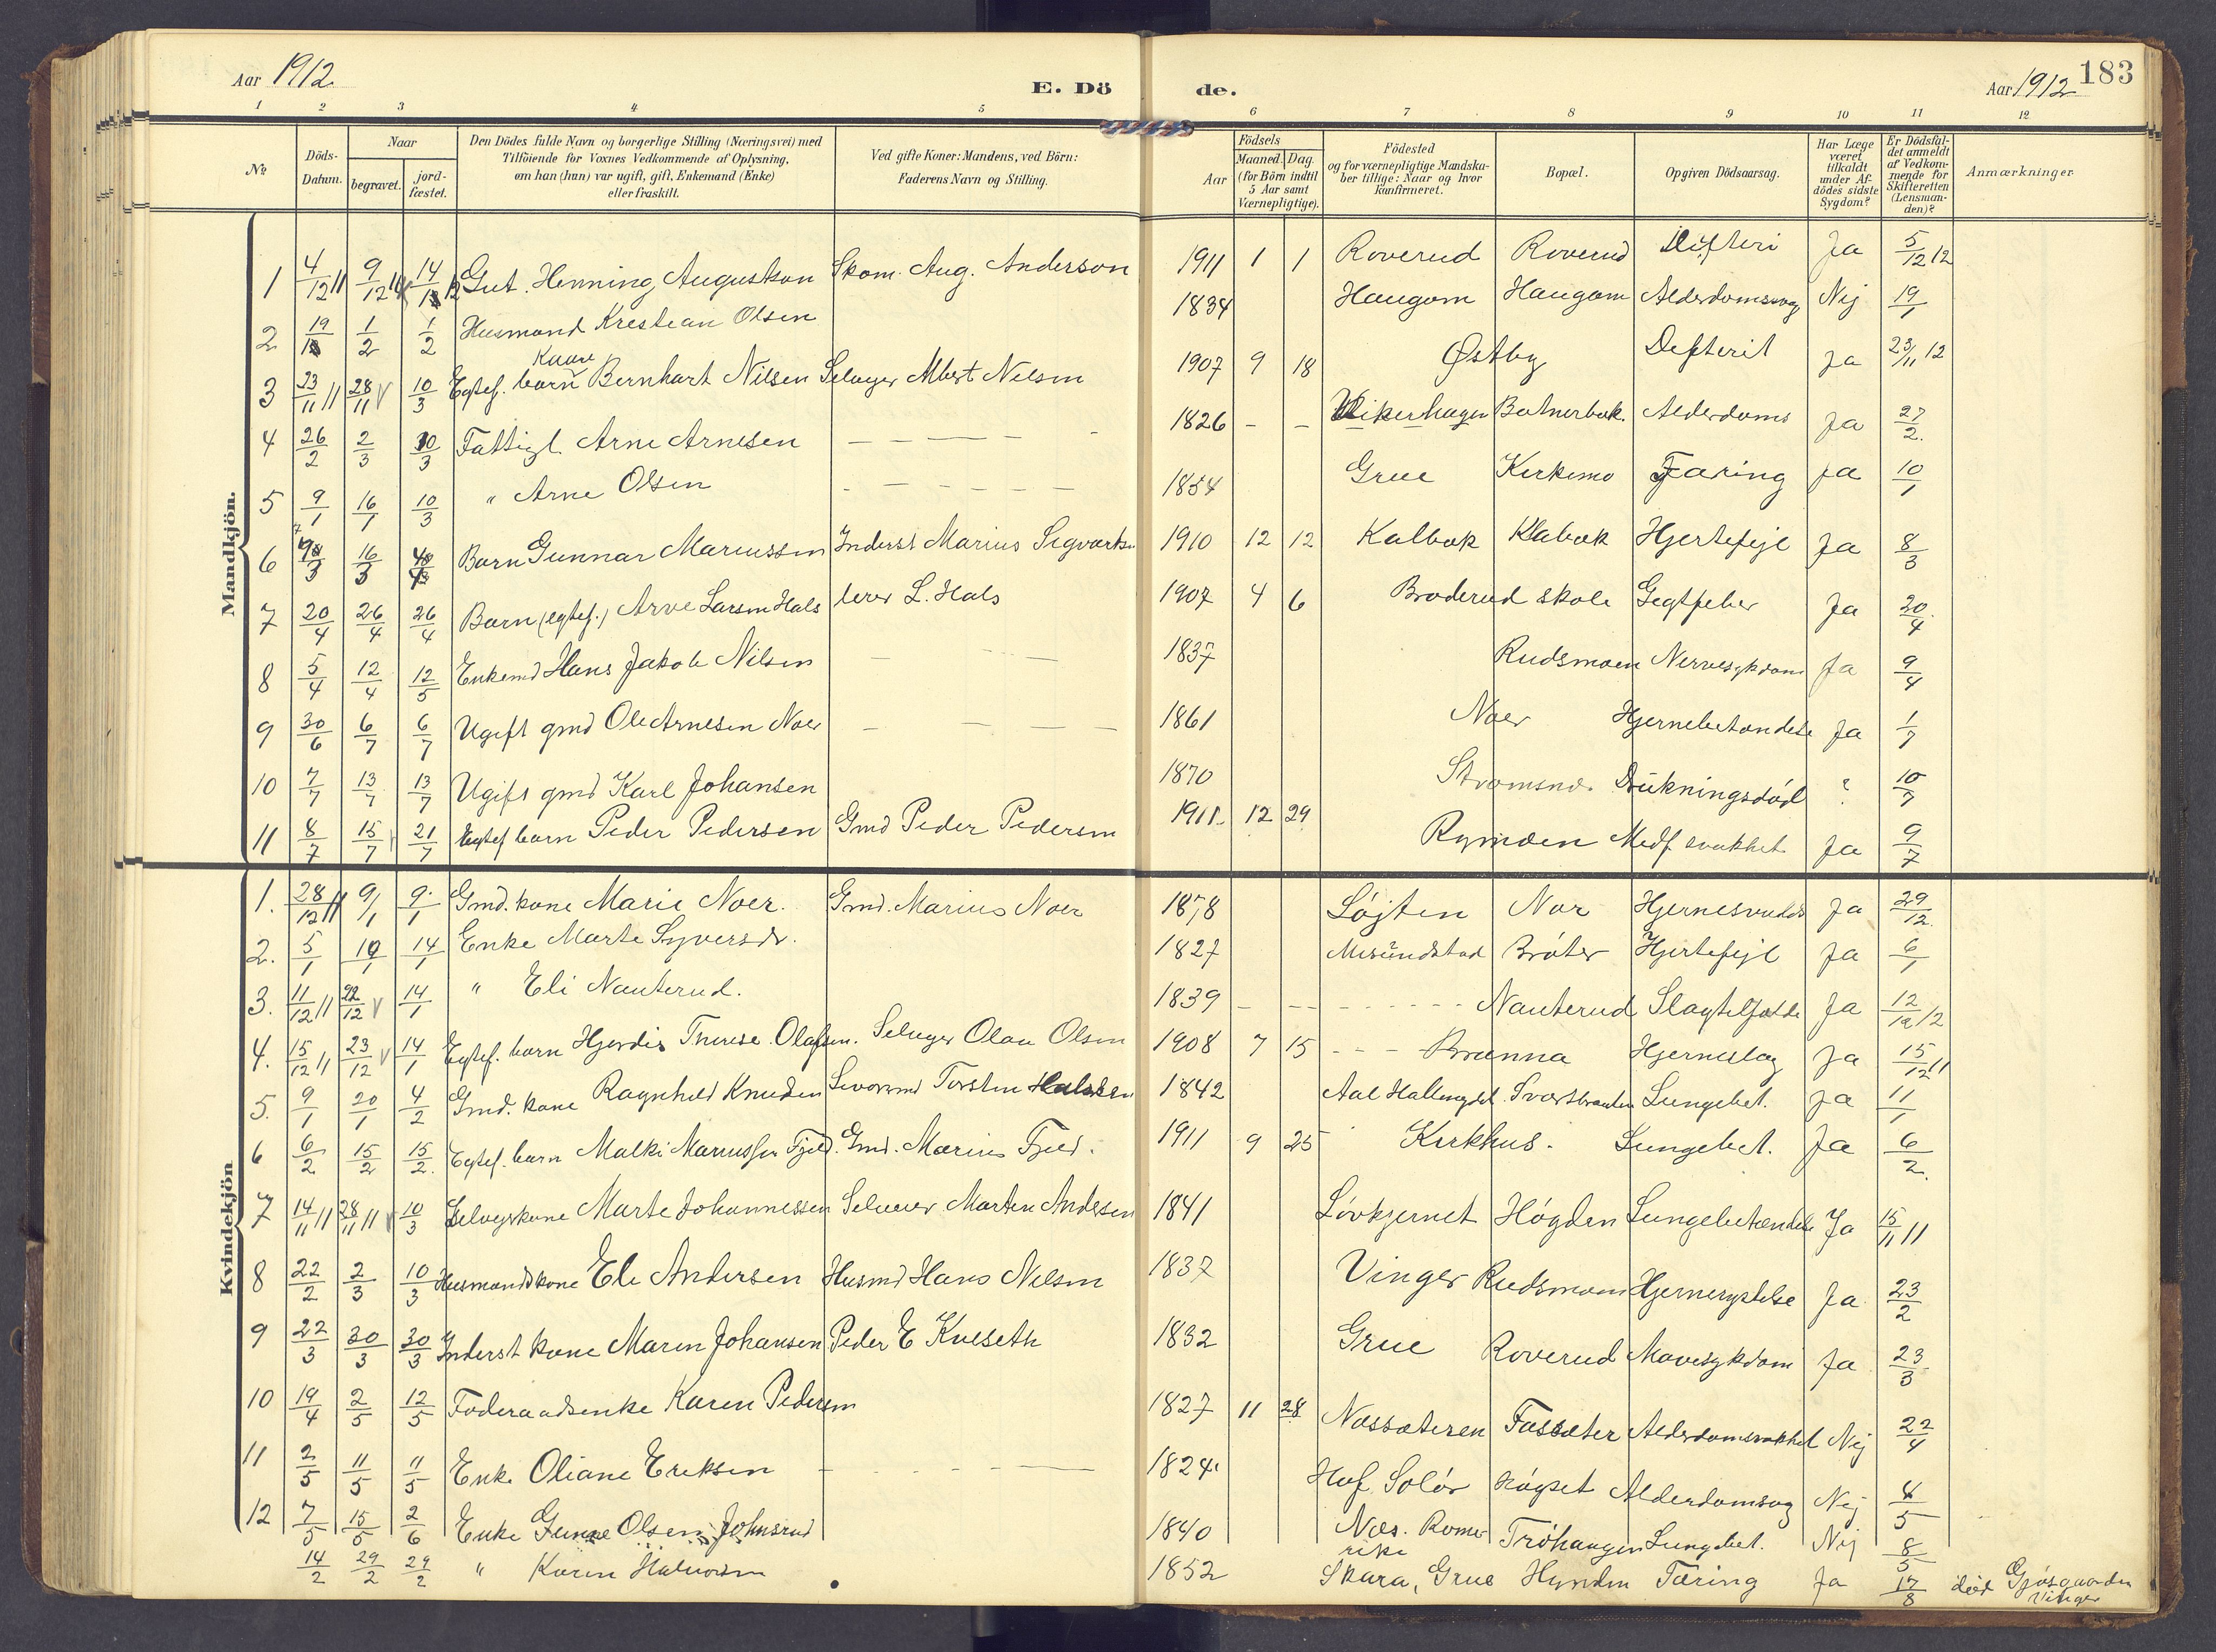 Aar 1912
E. Dö de.
Aar 1912 183
1 2 3 4 5 6 7 8 9 10 11 12
№
Döds-Datum.
Naar
begravet. jord-fæstet.
Den Dödes fulde Navn og borgerlige Stilling (Næringsvei) med
Tilföiende for Voxnes Vedkommende af Oplysning,
om han (hun) var ugift, gift, Enkemand (Enke)
eller fraskilt.
Ved gifte Koner: Mandens, ved Börn:
Faderens Navn og Stilling.
Födsels
Aar Maaned. Dag.
(for Börn indtil
5 Aar samt
Værnepligtige).
Födested
og for værnepligtige Mandska-
ber tillige: Naar og hvor
konfirmeret.
Bopæl.
Opgiven Dödsaarsag.
Har Læge
været
tilkaldt
under Af-
dödes sidste
Sygdom?
Er Dödsfal-
det anmeldt
af Vedkom-
mende for
Skifteretten
(Lensman-
den)?
Anmærkninger.
Mandkjön.
1 4/12 11 9/12 11 14/ 12 Gut. Henning Augustson Skom. Aug. Anderson 1911 1 1 Roverud Roverud Difteri Ja 5/12 12
2 19/1 1/2 1/2 Husmand Krestian Olsen 1834 Haugom Haugom Alderdomsvag Nej 19/1
3 23/11 11 28/11 10/3 Egtef. barn Kaare Bernhart Nilsen Selveger Albert Nelsen 1907 9 18 Østby Defterit Ja 23/11 12
4 26/2 2/3 10/3 Fattigl. Arne Arnesen — — — — 1826 - - Vikerhagen Batnerbak. Alderdoms Ja 27/2.
5 9/1 16/1 10/3 " Arne Olsen - - - - 1854 Grue Kirkemo Tæring Ja 10/1
6 /3 16/3 Barn Gunnar Mariussen Inderst Marius Sigvarts 1910 12 12 Kalbak Klabak Hjertefejl Ja 8/3
7 20/4 26/4 26/4 Barn (egtef.) Arve Larsen Hals lerer L. Hals 1907 4 6 Braderud skole Gegtfeber Ja 20/4
8 5/4 12/4 12/5 Enkemd Hans Jakob Nilsen — — 1837 Rudsmoen Nervesykdom Ja 9/4
9 30/6 6/7 6/7 Ugift gmd Ole Arnesen Noer — — — 1861 Noer Hjernebetændelse Ja 1/7
10 7/7 13/7 13/7 Ugift gmd Karl Johansen 1870 Strømsnd. Drukningsdød ? 10/7
11 8/7 15/7 21/7 Egtef barn Peder Pedersen Gmd Peder Pedersen 1911 12 29 Rymoen Medf. svakhet Ja 9/7
Kvindekjön
1. 28/12 11 9/1 9/1 Gmd. kone Marie Noer. Gmd. Marius Noer 1878 Løjten Nor Ja 29/12.
2. 5/1 14/1 Enke Marte Syversdr. 1827 Mesundstad Bråten Hjertefejl Ja 6/1
3. 11/12 11 22/12 14/1 " Eli Nauterud. 1839 - - - - Nauterud Slagtelfælde Ja 12/12 12
4. 15/12 11 23/12 14/1 Egtef. barn Hjordis Therese Olafsen. Seleger Olau Olsen 1908 7 15 - - - Brunna Hjerneslag Ja 15/12 11
5. 9/1 20/1 4/2 Gmd. kone Ragnhild Knudsen Torsten 1842 Aal Hallingdal. Svartbraaten Lungebet. Ja 11/1
6 6/2 15/2 15/2. Egtef. barn Malki Mariussen Fjeld. Gmd. Marius Fjeld. 1911 9 25 Kirkhus. Lungebet. Ja 6/2.
7 14/11 11 28/11 11 10/3 Selvegerkone Marte Johannessen Selveier Marten Andersen 1841 Løvkjernet Høgden Lungebetændelse Ja 15/11 11
8 22/2 2/3 10/3 Husmandskone Eli Andersen Husmd Hans Nelsen 1837 Vinger Rudsmoen Hjernerystelse Ja 23/2
9 22/3 30/3 30/3 Inderst kone Maren Johansen Peder E Kveseth 1832 Grue Roverud Mavesykdom Ja 23/3
10 19/4 2/5 12/5 Foderaadsenke Karen Pedersen 1827 11 28 Næssæteren Fassæter Alderdomsvakhet Nej 22/4
11 2/5 11/5 11/5 Enke Oliane Eriksen - - - - 1824. Hof Solør Høgset Alderdomsvag Nej 4/5
12 7/5 15/5 2/6 Enke Gunne Olsen Johnsrud 1840 Næs. Romerrike Trøhaugen Lungebet. Nej 8/5
14/2 29/2 29/2 " Karen Halvorsen 1852 Skara, Grue Hynden Tæring Ja 17/8 død Gjøsgaarden Vinger